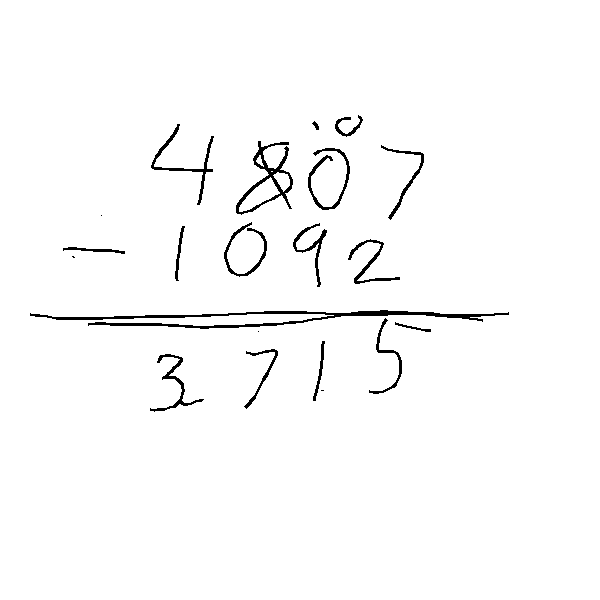 10
4807
- 1092
3715